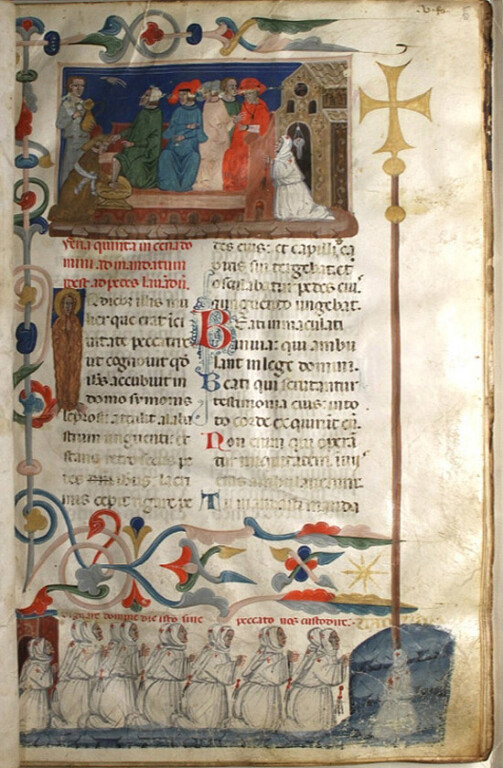 feria quinta in cena do
mini ad mandatum
ad pedes
lier que erat ici
uitate peccatrix
ut cognouit qō
accubuit in
domo symonis
leprosi: attulit alaba
strum unguenti: et
stans retro secus pe
des lacri
mis cepit rigare pe
des eius: et capillis ca
pitis sui tergebat: et
osculabatur pedes eius:
unguento ungebat.
Beati immaculati
in uia: qui ambu
lant in lege domini.
Beati qui scrutantur
testimonia eius: in to
to corde exquirunt eū.
Non enim qui operā
tur iniquitatem: in ui
eius ambulauerunt
Tu mandasti manda
Dignare domine die isto sine peccato nos custodire.